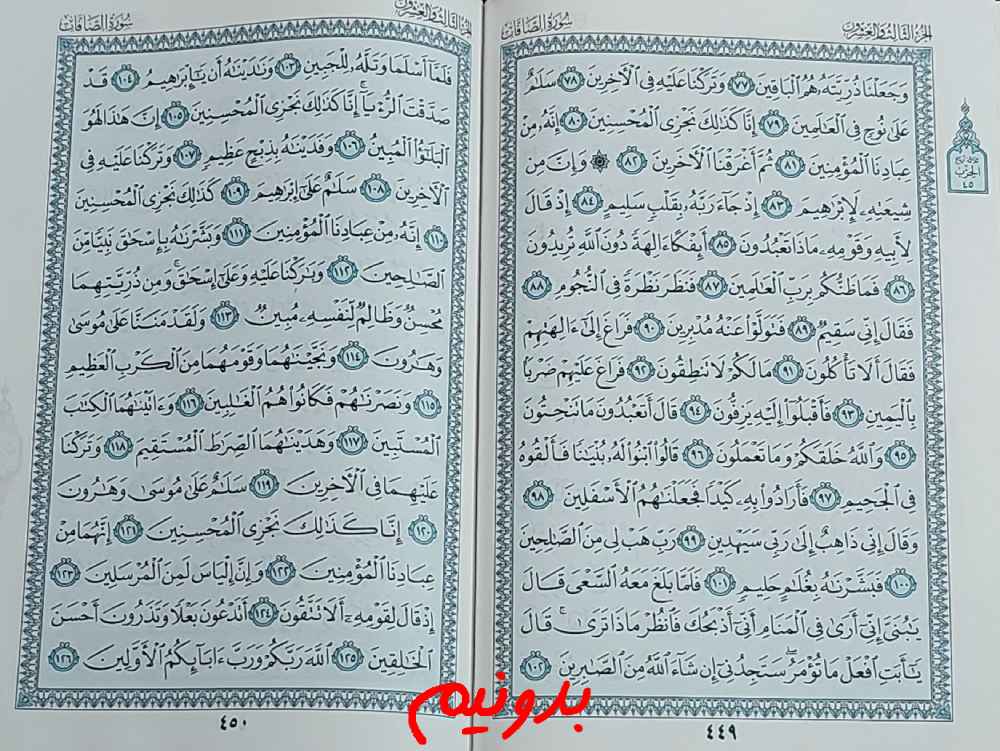 الجزء الثالث والعشرون
سورة الصافات
وَجَعَلْنَا ذُرِّيَّتَهُۥ هُمُ الْبَاقِينَ ٧٧ وَتَرَكْنَا عَلَيْهِ فِي الْآخِرِينَ ٧٨ سَلَامٌ
عَلَىٰ نُوحٍ فِي الْعَالَمِينَ ٧٩ إِنَّا كَذَٰلِكَ نَجْزِي الْمُحْسِنِينَ ٨٠ إِنَّهُۥ مِنْ
عِبَادِنَا الْمُؤْمِنِينَ ٨١ ثُمَّ أَغْرَقْنَا الْآخَرِينَ ٨٢ ۞ وَإِنَّ مِن
شِيعَتِهِۦ لَإِبْرَاهِيمَ ٨٣ إِذْ جَاءَ رَبَّهُۥ بِقَلْبٍ سَلِيمٍ ٨٤ إِذْ قَالَ
لِأَبِيهِ وَقَوْمِهِۦ مَاذَا تَعْبُدُونَ ٨٥ أَئِفْكًا آلِهَةً دُونَ اللَّهِ تُرِيدُونَ
٨٦ فَمَا ظَنُّكُم بِرَبِّ الْعَالَمِينَ ٨٧ فَنَظَرَ نَظْرَةً فِي النُّجُومِ ٨٨
فَقَالَ إِنِّي سَقِيمٌ ٨٩ فَتَوَلَّوْا عَنْهُ مُدْبِرِينَ ٩٠ فَرَاغَ إِلَىٰ آلِهَتِهِمْ
فَقَالَ أَلَا تَأْكُلُونَ ٩١ مَا لَكُمْ لَا تَنطِقُونَ ٩٢ فَرَاغَ عَلَيْهِمْ ضَرْبًا
بِالْيَمِينِ ٩٣ فَأَقْبَلُوا إِلَيْهِ يَزِفُّونَ ٩٤ قَالَ أَتَعْبُدُونَ مَا تَنْحِتُونَ
٩٥ وَاللَّهُ خَلَقَكُمْ وَمَا تَعْمَلُونَ ٩٦ قَالُوا ابْنُوا لَهُۥ بُنْيَانًا فَأَلْقُوهُ
فِي الْجَحِيمِ ٩٧ فَأَرَادُوا بِهِۦ كَيْدًا فَجَعَلْنَاهُمُ الْأَسْفَلِينَ ٩٨
وَقَالَ إِنِّي ذَاهِبٌ إِلَىٰ رَبِّي سَيَهْدِينِ ٩٩ رَبِّ هَبْ لِي مِنَ الصَّالِحِينَ
١٠٠ فَبَشَّرْنَاهُ بِغُلَامٍ حَلِيمٍ ١٠١ فَلَمَّا بَلَغَ مَعَهُ السَّعْيَ قَالَ
يَا بُنَيَّ إِنِّي أَرَىٰ فِي الْمَنَامِ أَنِّي أَذْبَحُكَ فَانظُرْ مَاذَا تَرَىٰ ۚ قَالَ
يَا أَبَتِ افْعَلْ مَا تُؤْمَرُ ۖ سَتَجِدُنِي إِن شَاءَ اللَّهُ مِنَ الصَّابِرِينَ ١٠٢
٤٤٩
الحزب
٤٥
الجزء الثالث والعشرون
سورة الصافات
فَلَمَّا أَسْلَمَا وَتَلَّهُۥ لِلْجَبِينِ ١٠٣ وَنَادَيْنَاهُ أَن يَا إِبْرَاهِيمُ ١٠٤ قَدْ
صَدَّقْتَ الرُّؤْيَا ۚ إِنَّا كَذَٰلِكَ نَجْزِي الْمُحْسِنِينَ ١٠٥ إِنَّ هَٰذَا لَهُوَ
الْبَلَاءُ الْمُبِينُ ١٠٦ وَفَدَيْنَاهُ بِذِبْحٍ عَظِيمٍ ١٠٧ وَتَرَكْنَا عَلَيْهِ فِي
الْآخِرِينَ ١٠٨ سَلَامٌ عَلَىٰ إِبْرَاهِيمَ ١٠٩ كَذَٰلِكَ نَجْزِي الْمُحْسِنِينَ
١١٠ إِنَّهُۥ مِنْ عِبَادِنَا الْمُؤْمِنِينَ ١١١ وَبَشَّرْنَاهُ بِإِسْحَاقَ نَبِيًّا مِّنَ
الصَّالِحِينَ ١١٢ وَبَارَكْنَا عَلَيْهِ وَعَلَىٰ إِسْحَاقَ ۚ وَمِن ذُرِّيَّتِهِمَا
مُحْسِنٌ وَظَالِمٌ لِّنَفْسِهِۦ مُبِينٌ ١١٣ وَلَقَدْ مَنَنَّا عَلَىٰ مُوسَىٰ
وَهَارُونَ ١١٤ وَنَجَّيْنَاهُمَا وَقَوْمَهُمَا مِنَ الْكَرْبِ الْعَظِيمِ
١١٥ وَنَصَرْنَاهُمْ فَكَانُوا هُمُ الْغَالِبِينَ ١١٦ وَآتَيْنَاهُمَا الْكِتَابَ
الْمُسْتَبِينَ ١١٧ وَهَدَيْنَاهُمَا الصِّرَاطَ الْمُسْتَقِيمَ ١١٨ وَتَرَكْنَا
عَلَيْهِمَا فِي الْآخِرِينَ ١١٩ سَلَامٌ عَلَىٰ مُوسَىٰ وَهَارُونَ
١٢٠ إِنَّا كَذَٰلِكَ نَجْزِي الْمُحْسِنِينَ ١٢١ إِنَّهُمَا مِنْ
عِبَادِنَا الْمُؤْمِنِينَ ١٢٢ وَإِنَّ إِلْيَاسَ لَمِنَ الْمُرْسَلِينَ ١٢٣
إِذْ قَالَ لِقَوْمِهِۦ أَلَا تَتَّقُونَ ١٢٤ أَتَدْعُونَ بَعْلًا وَتَذَرُونَ أَحْسَنَ
الْخَالِقِينَ ١٢٥ اللَّهَ رَبَّكُمْ وَرَبَّ آبَائِكُمُ الْأَوَّلِينَ ١٢٦
٤٥٠
بدونیم